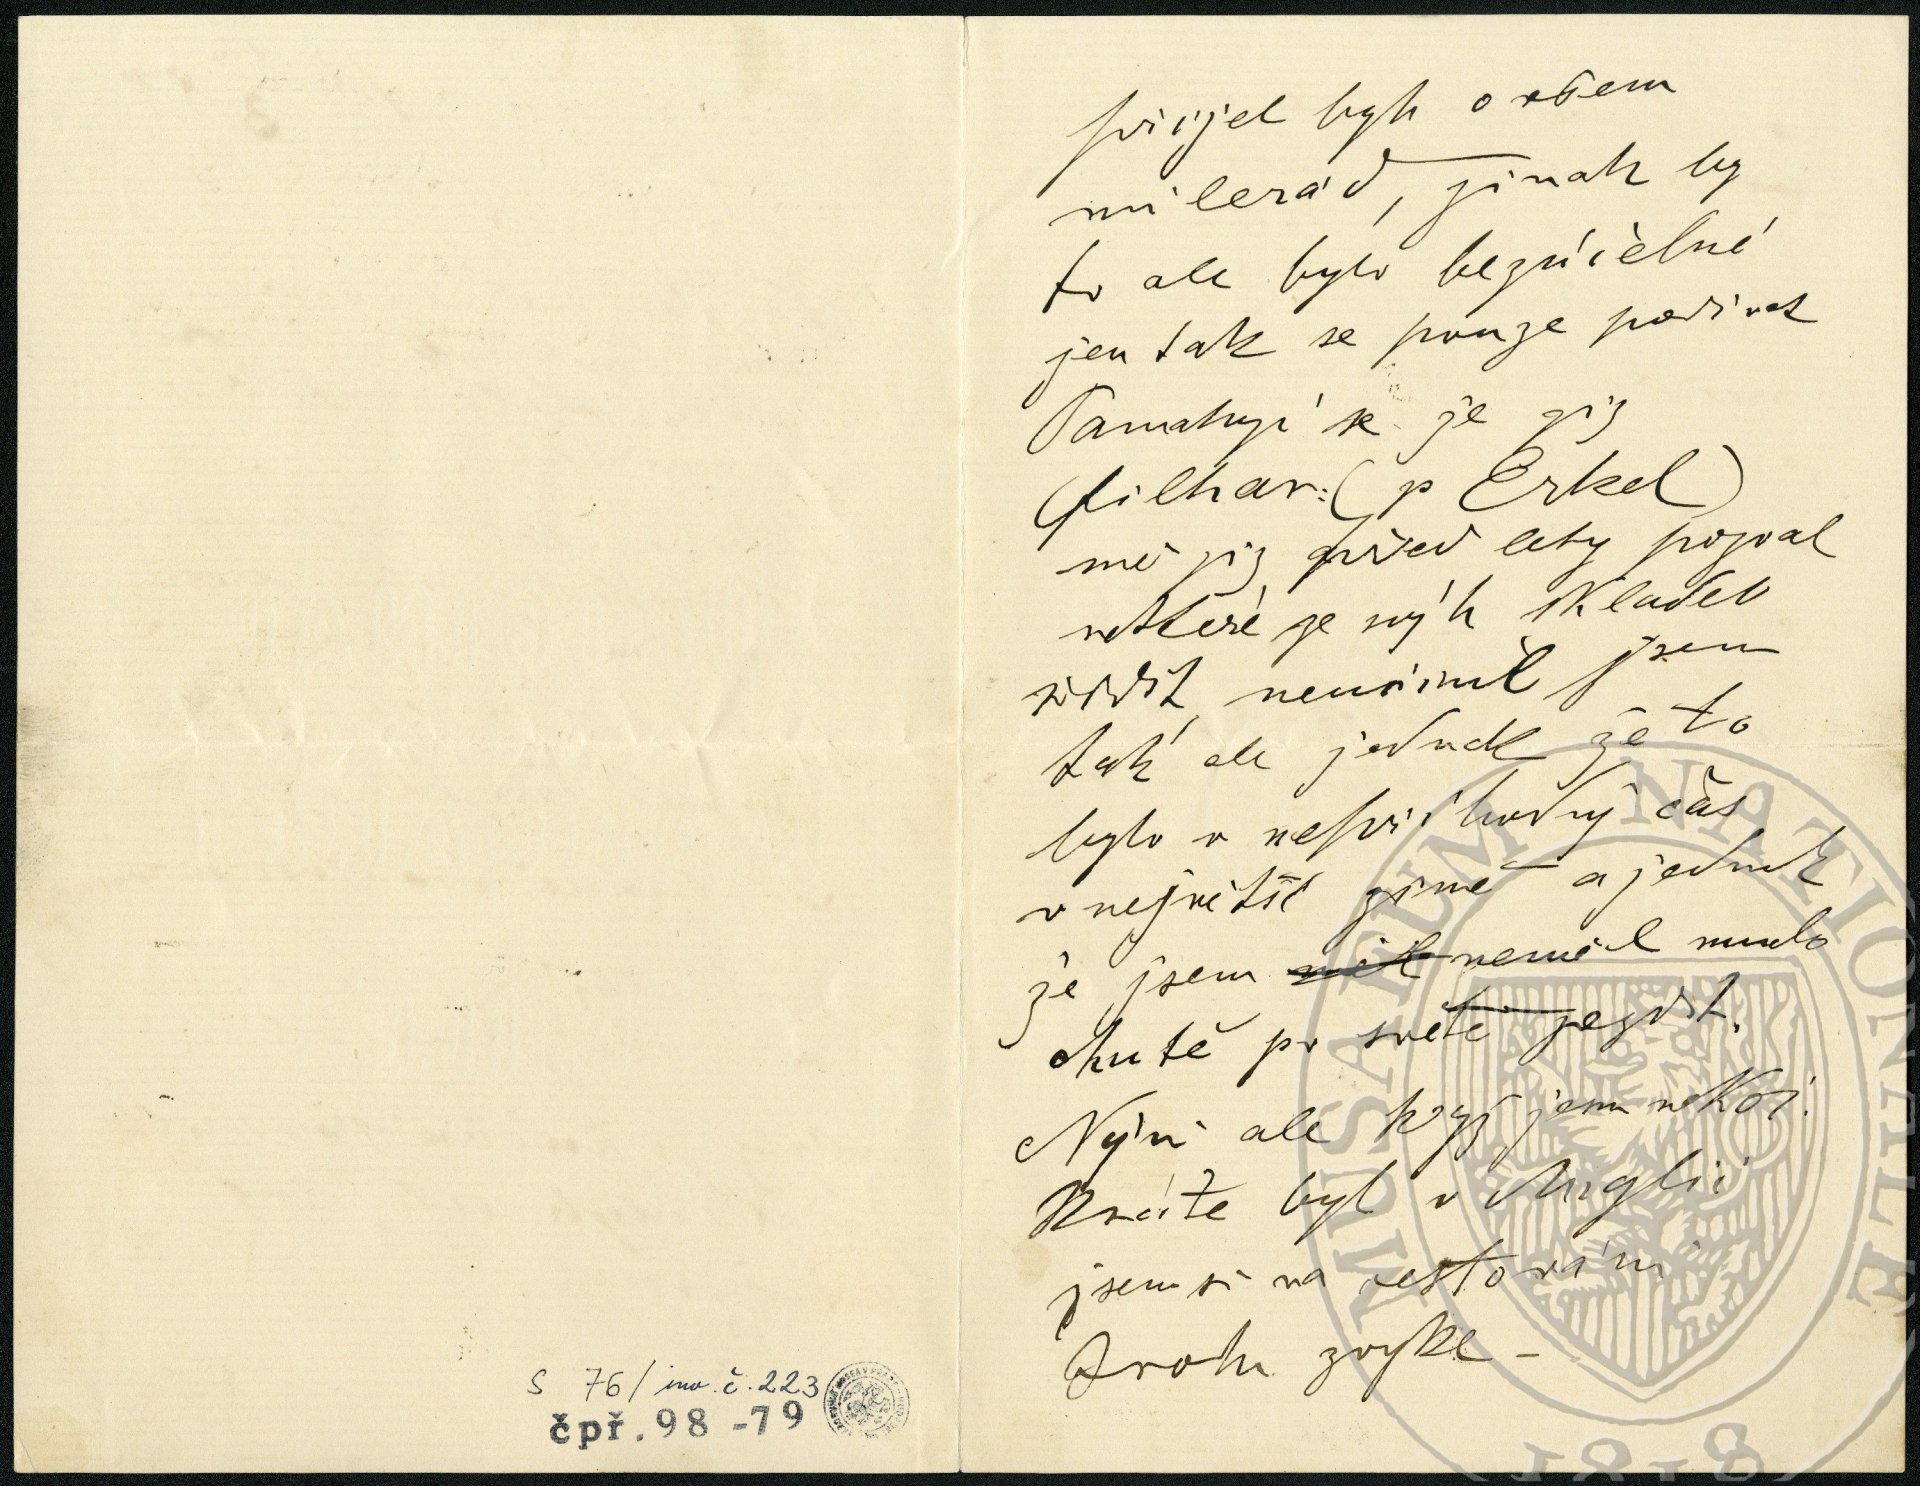 přijel bych ovšem
milerád, jinak by
to ale bylo bezúčelné
jen tak se pouze podivat
Pamatuji se je již
filhar: (p Erkel)
mě již před lety pozval
některé ze svých skladeb
řídit, neučinil jsem
tak ale jednak že to
bylo v nepříhodný čas
v největší zimě a jednak
že jsem nemněl mnoho
chutě po světě jezdit.
Nyní ale když jsem někol.
Kráte byl v Anglii
jsem si na cestování
trochu zvykl –
S 76/ inv. č. 223
čpř. 98 -79
MUSAEUM NATIONALE
1818